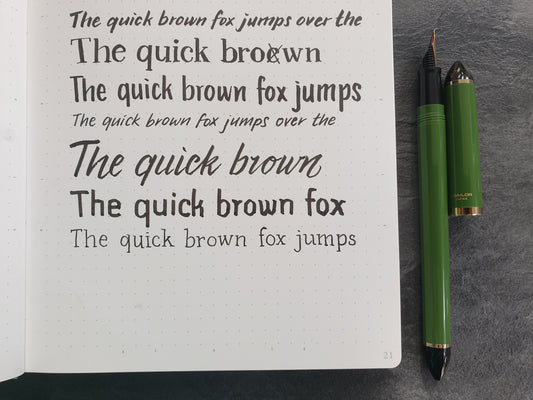 The quick brown fox jumps over the
The quick brocwn
The quick brown fox jumps
The quick brown fox jumps over the
The quick brown
The quick brown fox
The quick brown fox jumps
21
SAILOR
JAPAN